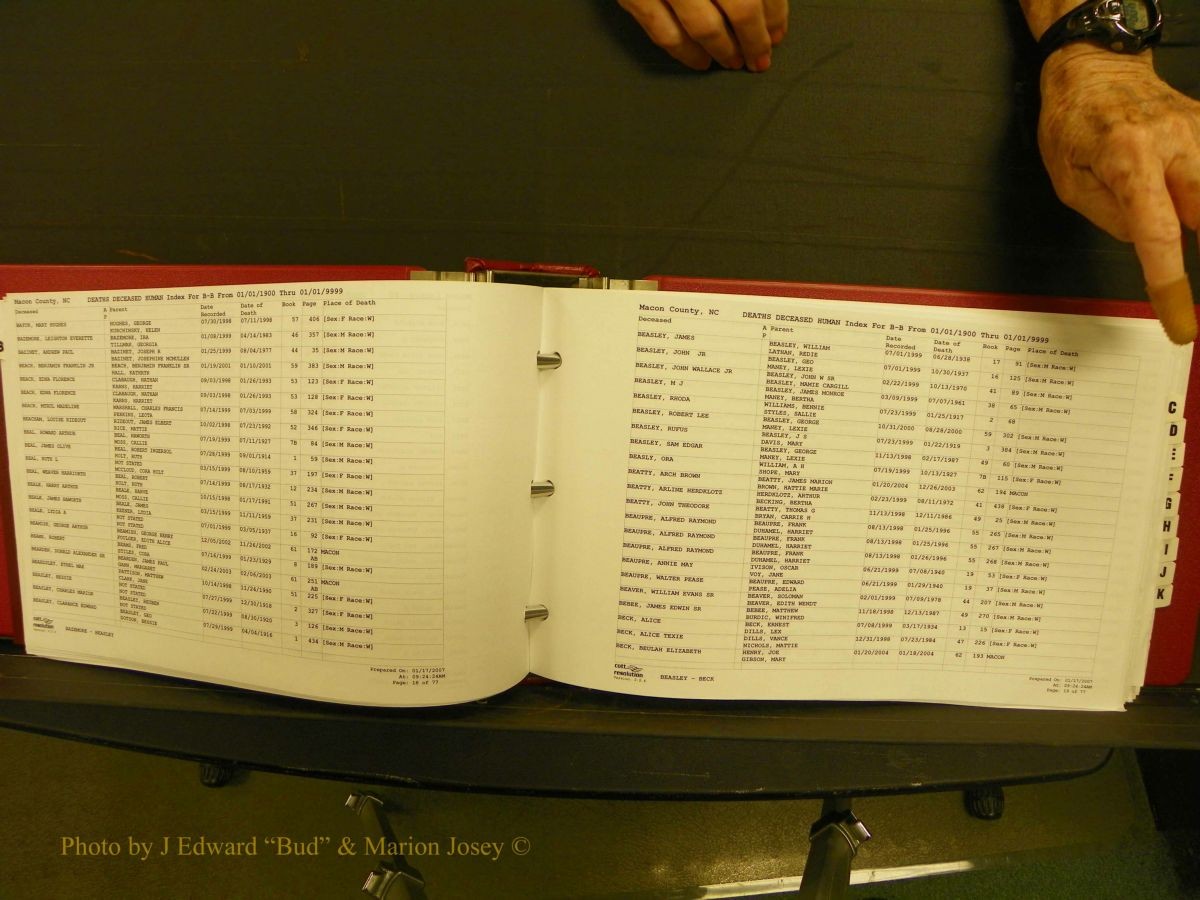 Macon County, NC DEATHS DECEASED HUMAN Index For B-B From 01/01/1900 Thru 01/01/9999
Deceased A Parent Date Recorded Date of Death Book Page Place of Death
P
BATON, MARY HUGHES HUGHES, GEORGE 07/30/1998 07/11/1998 57 406 [Sex:F Race:W]
KURCHINSKY, HELEN
BAZEMORE, LEIGHTON EVERETTE BAZEMORE, IRA 01/08/1999 04/14/1983 46 357 [Sex:M Race:W]
TILLMAN, GEORGIA
BAZINET, ANDREW PAUL BAZINET, JOSEPH R 01/25/1999 08/04/1977 44 35 [Sex:M Race:W]
BAZINET, JOSEPHINE MCMULLEN
BEACH, BENJAMIN FRANKLIN JR BEACH, BENJAMIN FRANKLIN SR 01/19/2001 01/10/2001 59 383 [Sex:M Race:W]
HALL, KATHRYN
BEACH, EDNA FLORENCE CLABAUGH, NATHAN 09/03/1998 01/26/1993 53 123 [Sex:F Race:W]
KARNS, HARRIET
BEACH, EDNA FLORENCE CLABAUGH, NATHAN 09/03/1998 01/26/1993 53 128 [Sex:F Race:W]
KARNS, HARRIET
BEACH, MERUL MADELINE MARSHALL, CHARLES FRANCIS 07/14/1999 07/03/1999 58 324 [Sex:F Race:W]
PERKINS, LEOTA
BEACHAM, LOUISE RIDEOUT RIDEOUT, JAMES ELBERT 10/02/1998 07/23/1992 52 346 [Sex:F Race:W]
RICE, MATTIE
BEAL, HOWARD ARTHUR BEAL, HAWORTH 07/19/1999 07/11/1927 7B 84 [Sex:M Race:W]
MOSS, CALLIE
BEAL, JAMES CLIVE BEAL, ROBERT INGERSOL 07/28/1999 09/01/1914 1 59 [Sex:M Race:W]
HOLT, RUTH
BEAL, RUTH L NOT STATED 03/15/1999 08/10/1959 37 197 [Sex:F Race:W]
MCCLOUD, CORA HOLT
BEAL, WEAVER BEAL, ROBERT 07/14/1999 08/17/1932 12 234 [Sex:M Race:W]
HOLT, RUTH
BEALE, HARRY ARTHUR 10/15/1998 01/17/1991 51 267 [Sex:M Race:W]
MOSS, CALLIE
BEALE, JAMES HAWORTH BEALE, JAMES 03/15/1999 11/11/1959 37 231 [Sex:M Race:W]
LYDIA
BEALE, LYDIA A NOT STATED 07/01/1999 03/05/1937 16 92 [Sex:F Race:W]
NOT STATED
BEAMISH, GEORGE ARTHUR BEAMISH, GEORGE HENRY 12/05/2002 11/26/2002 61 172 MACON
FOULDER, EDITH ALICE AB
BEARD, ROBERT 07/16/1999 01/23/1929 8 189 [Sex:M Race:W]
STILES, CORA
BEARDEN, DONALD ALEXANDER SR BEARDEN, JAMES PAUL 02/24/2003 02/06/2003 61 251 MACON
MARGARET AB
BEARDSLEY, ETHEL MAE PATTISON, MATTHEW 10/14/1998 11/24/1990 51 225 [Sex:F Race:W]
CLARK, JANE
BEASLEY, BESSIE NOT STATED 07/27/1999 12/30/1918 2 327 [Sex:F Race:W]
NOT STATED
BEASLEY, CHARLES MARION BEASLEY, REUBEN 07/22/1999 08/30/1920 3 126 [Sex:M Race:W]
NOT STATED
BEASLEY, CLARENCE EDWARD BEASLEY, GEO 07/29/1999 04/04/1916 1 434 [Sex:M Race:W]
BESSIE
cott resolution
BAZEMORE - BEASLEY
Prepared On: 01/17/2007
At: 09:24:24AM
Page: 18 of 77
Macon County, NC DEATHS DECEASED HUMAN Index For B-B From 01/01/1900 Thru 01/01/9999
Deceased A Parent Date Recorded Date of Death Book Page Place of Death
P
BEASLEY, JAMES BEASLEY, WILLIAM 07/01/1999 06/28/1938 17 91 [Sex:M Race:W]
LATHAN, REDIE
BEASLEY, JOHN JR BEASLEY, GEO 07/01/1999 10/30/1937 16 125 [Sex:M Race:W]
MANEY, LEXIE
BEASLEY, JOHN WALLACE JR BEASLEY, JOHN W SR 02/22/1999 10/13/1970 41 89 [Sex:M Race:W]
BEASLEY, MAMIE CARGILL
BEASLEY, M J BEASLEY, JAMES MONROE 03/09/1999 07/07/1961 38 65 [Sex:M Race:W]
MANEY, BERTHA
BEASLEY, RHODA WILLIAMS, BENNIE 07/23/1999 01/25/1917 2 68
STYLES, SALLIE
BEASLEY, ROBERT LEE BEASLEY, GEORGE 10/31/2000 08/28/2000 59 302 [Sex:M Race:W]
MANEY, LEXIE
BEASLEY, RUFUS BEASLEY, J S 07/23/1999 01/22/1919 3 384 [Sex:M Race:W]
DAVIS, MARY
BEASLEY, SAM EDGAR BEASLEY, GEORGE 11/13/1998 02/17/1987 49 60 [Sex:M Race:W]
MANEY, LEXIE
BEASLY, ORA WILLIAM, A H 07/19/1999 10/13/1927 7B 115 [Sex:F Race:W]
SHOPE, MARY
BEATTY, ARCH BROWN BEATTY, JAMES MARION 01/20/2004 12/26/2003 62 194 MACON
BROWN, HATTIE MARIE
BEATTY, ARLINE HERDKLOTZ HERDKLOTZ, ARTHUR 02/23/1999 08/11/1972 41 438 [Sex:F Race:W]
BECKING, BERTHA
BEATTY, JOHN THEODORE BEATTY, THOMAS G 11/13/1998 12/11/1986 49 25 [Sex:M Race:W]
BRYAN, CARRIE H
BEAUPRE, ALFRED RAYMOND BEAUPRE, FRANK 08/13/1998 01/25/1996 55 265 [Sex:M Race:W]
DUHAMEL, HARRIET
BEAUPRE, ALFRED RAYMOND BEAUPRE, FRANK 08/13/1998 01/25/1996 55 267 [Sex:M Race:W]
DUHAMEL, HARRIET
BEAUPRE, ALFRED RAYMOND BEAUPRE, FRANK 08/13/1998 01/26/1996 55 268 [Sex:M Race:W]
DUHAMEL, HARRIET
BEAUPRE, ANNIE MAY IVISON, OSCAR 06/21/1999 07/08/1940 19 53 [Sex:F Race:W]
VOY, JANE
BEAUPRE, WALTER PEASE BEAUPRE, EDWARD 06/21/1999 01/29/1940 19 37 [Sex:M Race:W]
PEASE, ADELIA
BEAVER, WILLIAM EVANS SR BEAVER, SOLOMAN 02/01/1999 07/09/1978 44 207 [Sex:M Race:W]
BEAVER, EDITH WENDT
BEBEE, JAMES EDWIN SR BEBEE, MATTHEW 11/18/1998 12/13/1987 49 270 [Sex:M Race:W]
BURDIC, WINIFRED
BECK, ALICE BECK, ERNEST 07/08/1999 03/17/1934 13 15 [Sex:F Race:W]
DILLS, LEX
BECK, ALICE TEXIE DILLS, VANCE 12/31/1998 07/23/1984 47 226 [Sex:F Race:W]
NICHOLS, MATTIE
BECK, BEULAH ELIZABETH HENRY, JOE 01/20/2004 01/18/2004 62 193 MACON
GIBSON, MARY
cott resolution
BEASLEY - BECK
Prepared On: 01/17/2007
At: 09:24:24AM
Page: 19 of 77
B
C
D
E
F
G
H
I
J
K
Photo by J Edward “Bud” & Marion Josey ©